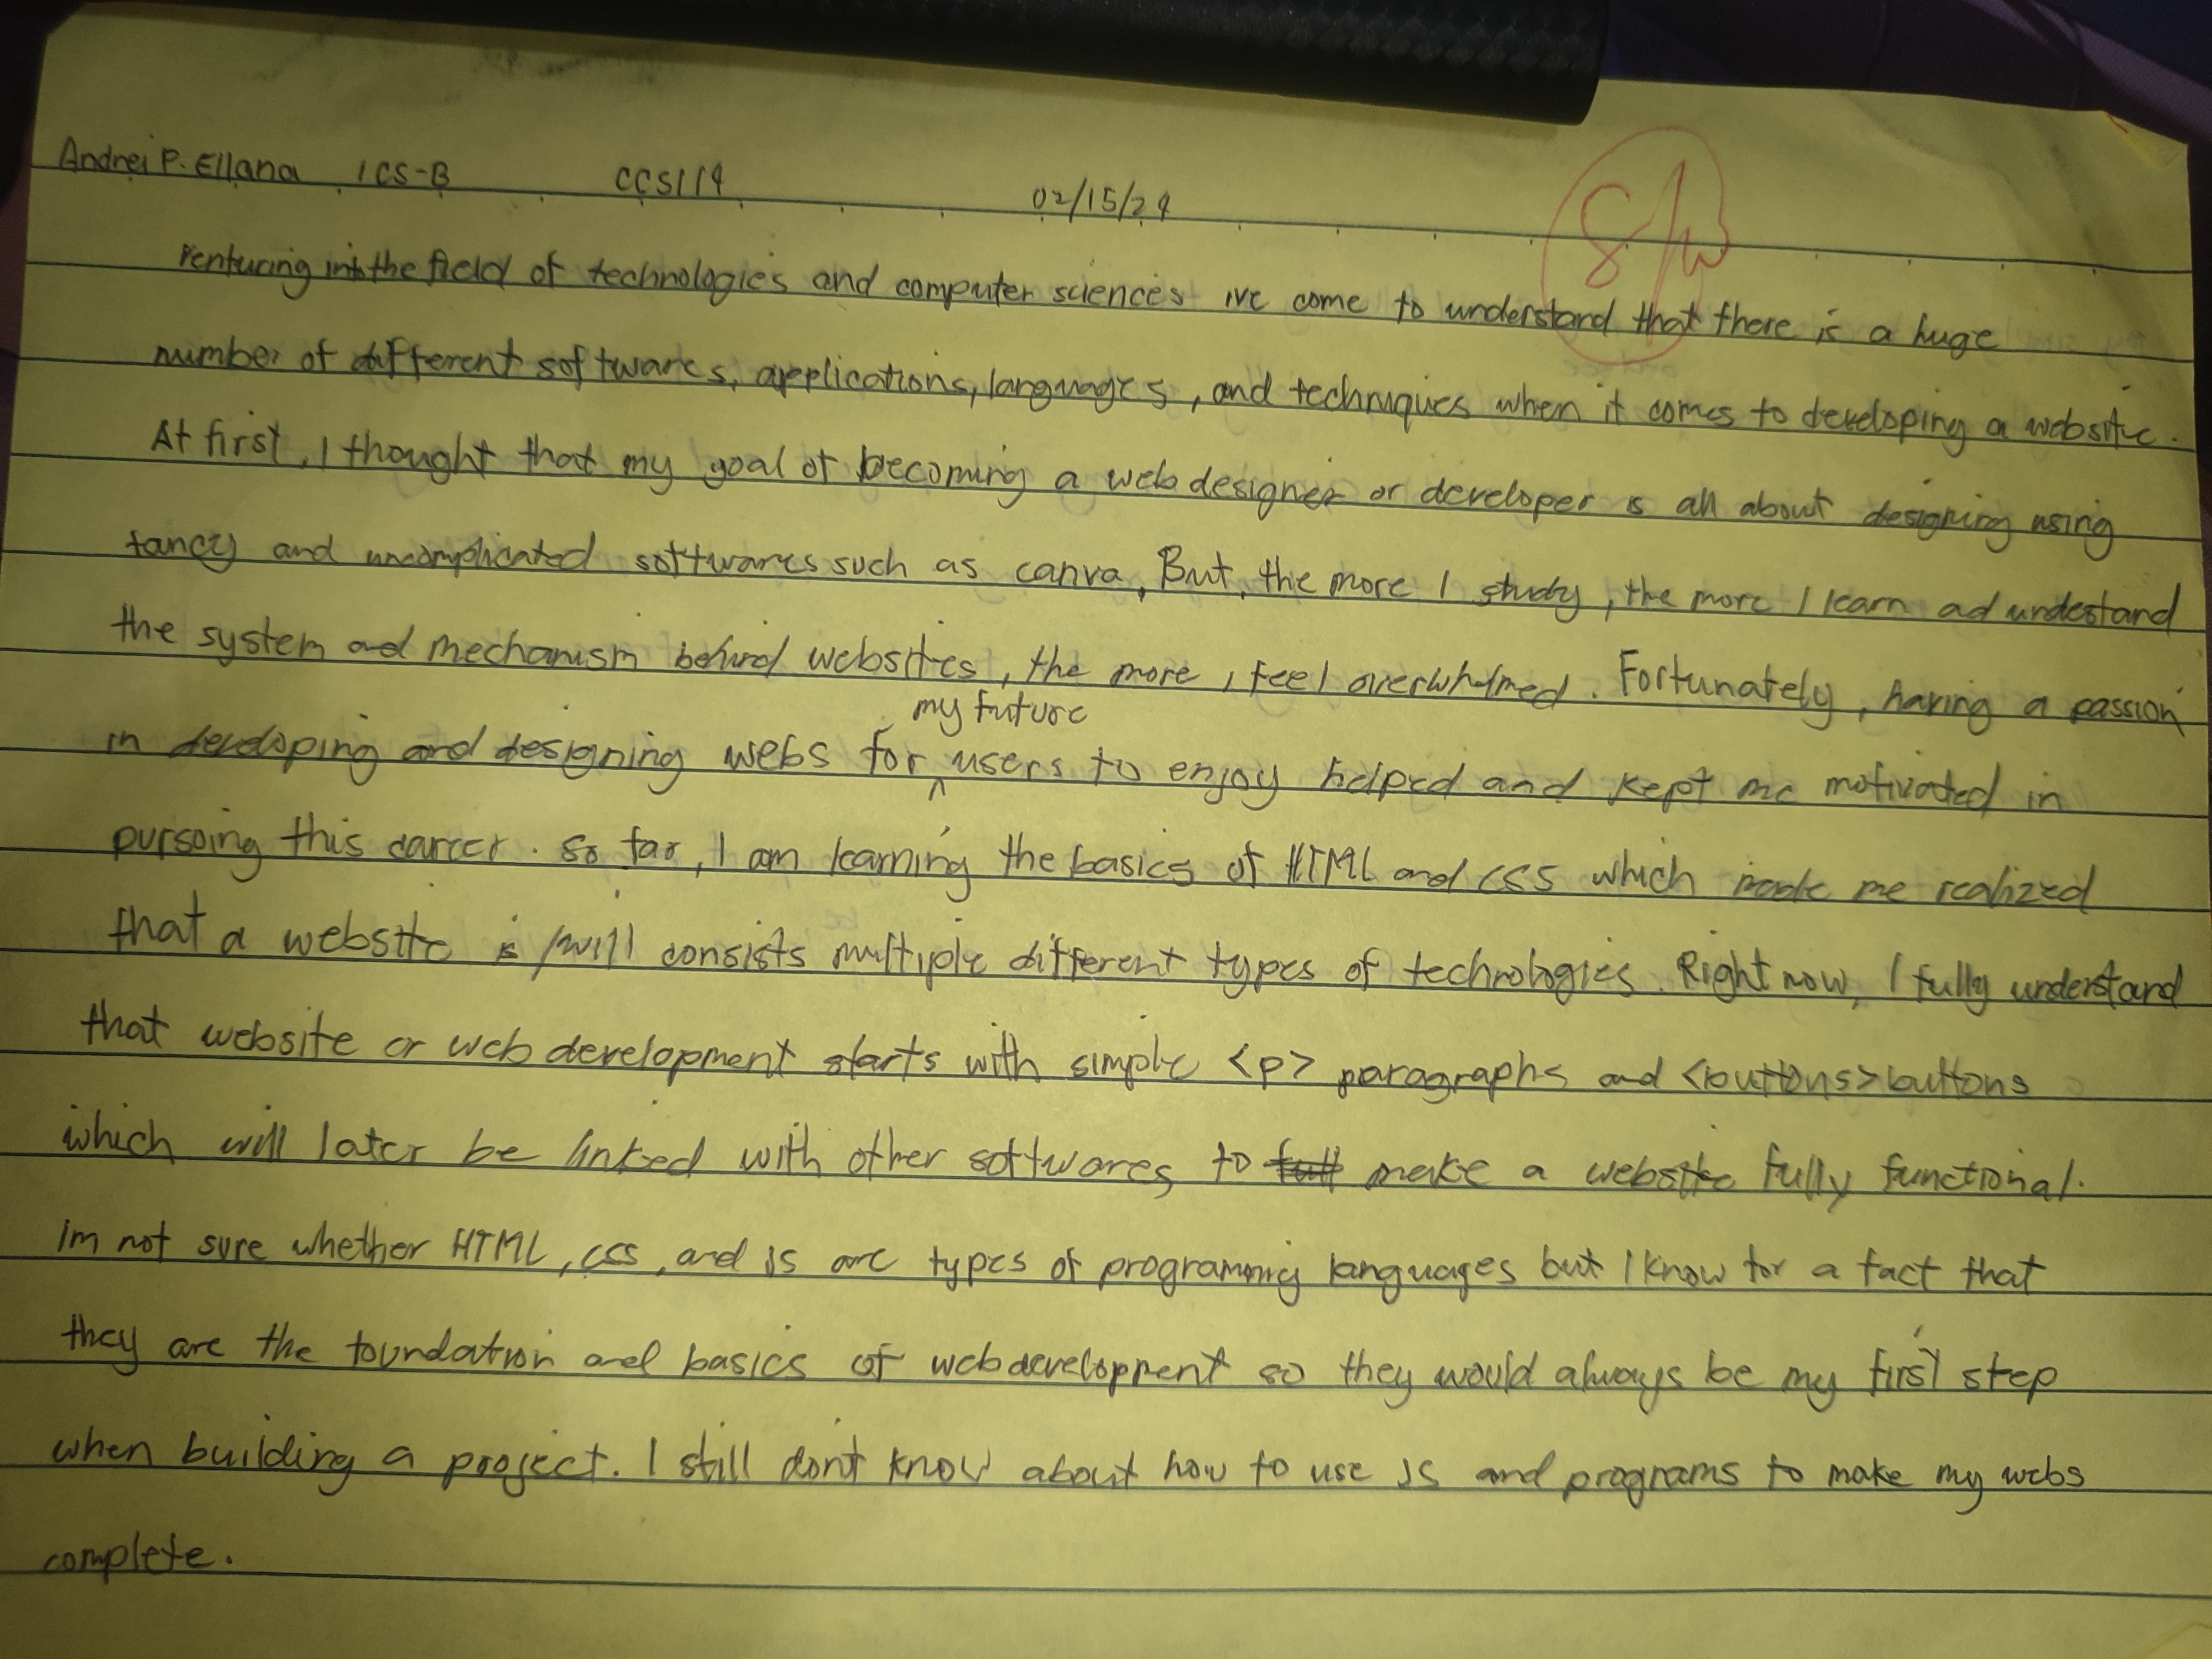 Andrei P. Ellana 1CS-B CCS114 02/15/24
8/10
Venturing into the field of technologies and computer sciences ive come to understand that there is a huge
number of different softwares, applications, languages, and techniques when it comes to developing a website.
At first, I thought that my goal of becoming a web designer or developer is all about designing using
fancy and uncomplicated softwares such as canva, But, the more I study, the more I learn ad undestand
the system and mechanism behind websites, the more I feel overwhelmed. Fortunately, having a passion
my future
in developing and designing webs for users to enjoy helped and kept me motivated in
pursoing this career. so far, I am learning the basics of HTML and CSS which made me realized
that a website is/will consists multiple different types of technologies. Right now, I fully understand
that website or web development starts with simple <p> paragraphs and <buttons> buttons
which will later be linked with other softwares, to full make a website fully functional.
im not sure whether HTML, CSS, and JS are types of programming languages but I know for a fact that
they are the foundation and basics of web development so they would always be my first step
when building a project. I still don't know about how to use JS and programs to make my webs
complete.